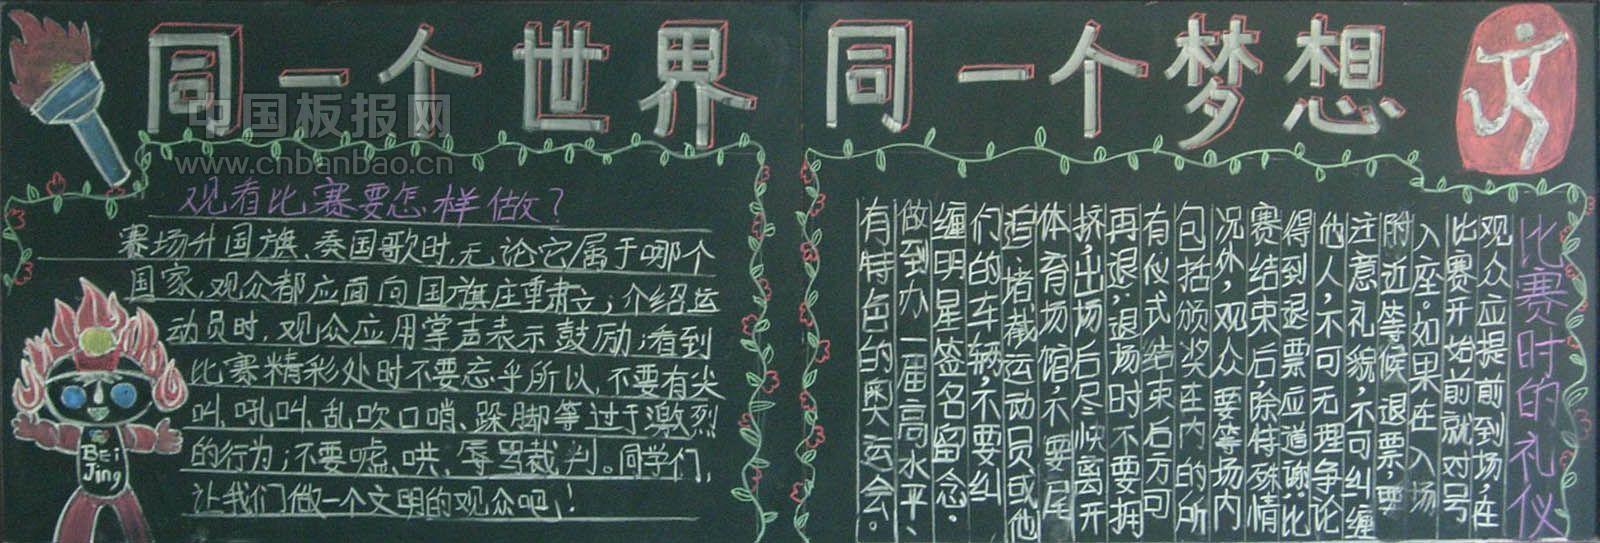 同一个世界 同一个梦想
中国板报网
www.cnbanbao.cn
观看比赛要怎样做？
赛场升国旗、奏国歌时，无论它属于哪个
国家，观众都应面向国旗庄重肃立；介绍运
动员时，观众应用掌声表示鼓励；看到
比赛精彩处时不要忘乎所以，不要有尖
叫、吼叫、乱吹口哨、跺脚等过于激烈
的行为；不要嘘、哄、辱骂裁判。同学们，
让我们做一个文明的观众吧！
BEi
Jing
比赛时的礼仪
观众应提前到场，在
比赛开始前就对号
入座。如果在入场
附近等候退票，要
注意礼貌，不可纠缠
他人，不可无理争论
得到退票应道谢；比
赛结束后，除特殊情
况外，观众要等场内
包括颁奖在内的所
有仪式结束后方可
再退；退场时不要拥
挤，出场后尽快离开
体育场馆，不要尾
追、堵截运动员或他
们的车辆，不要纠
缠明星签名留念。
做到办一届高水平、
有特色的奥运会。